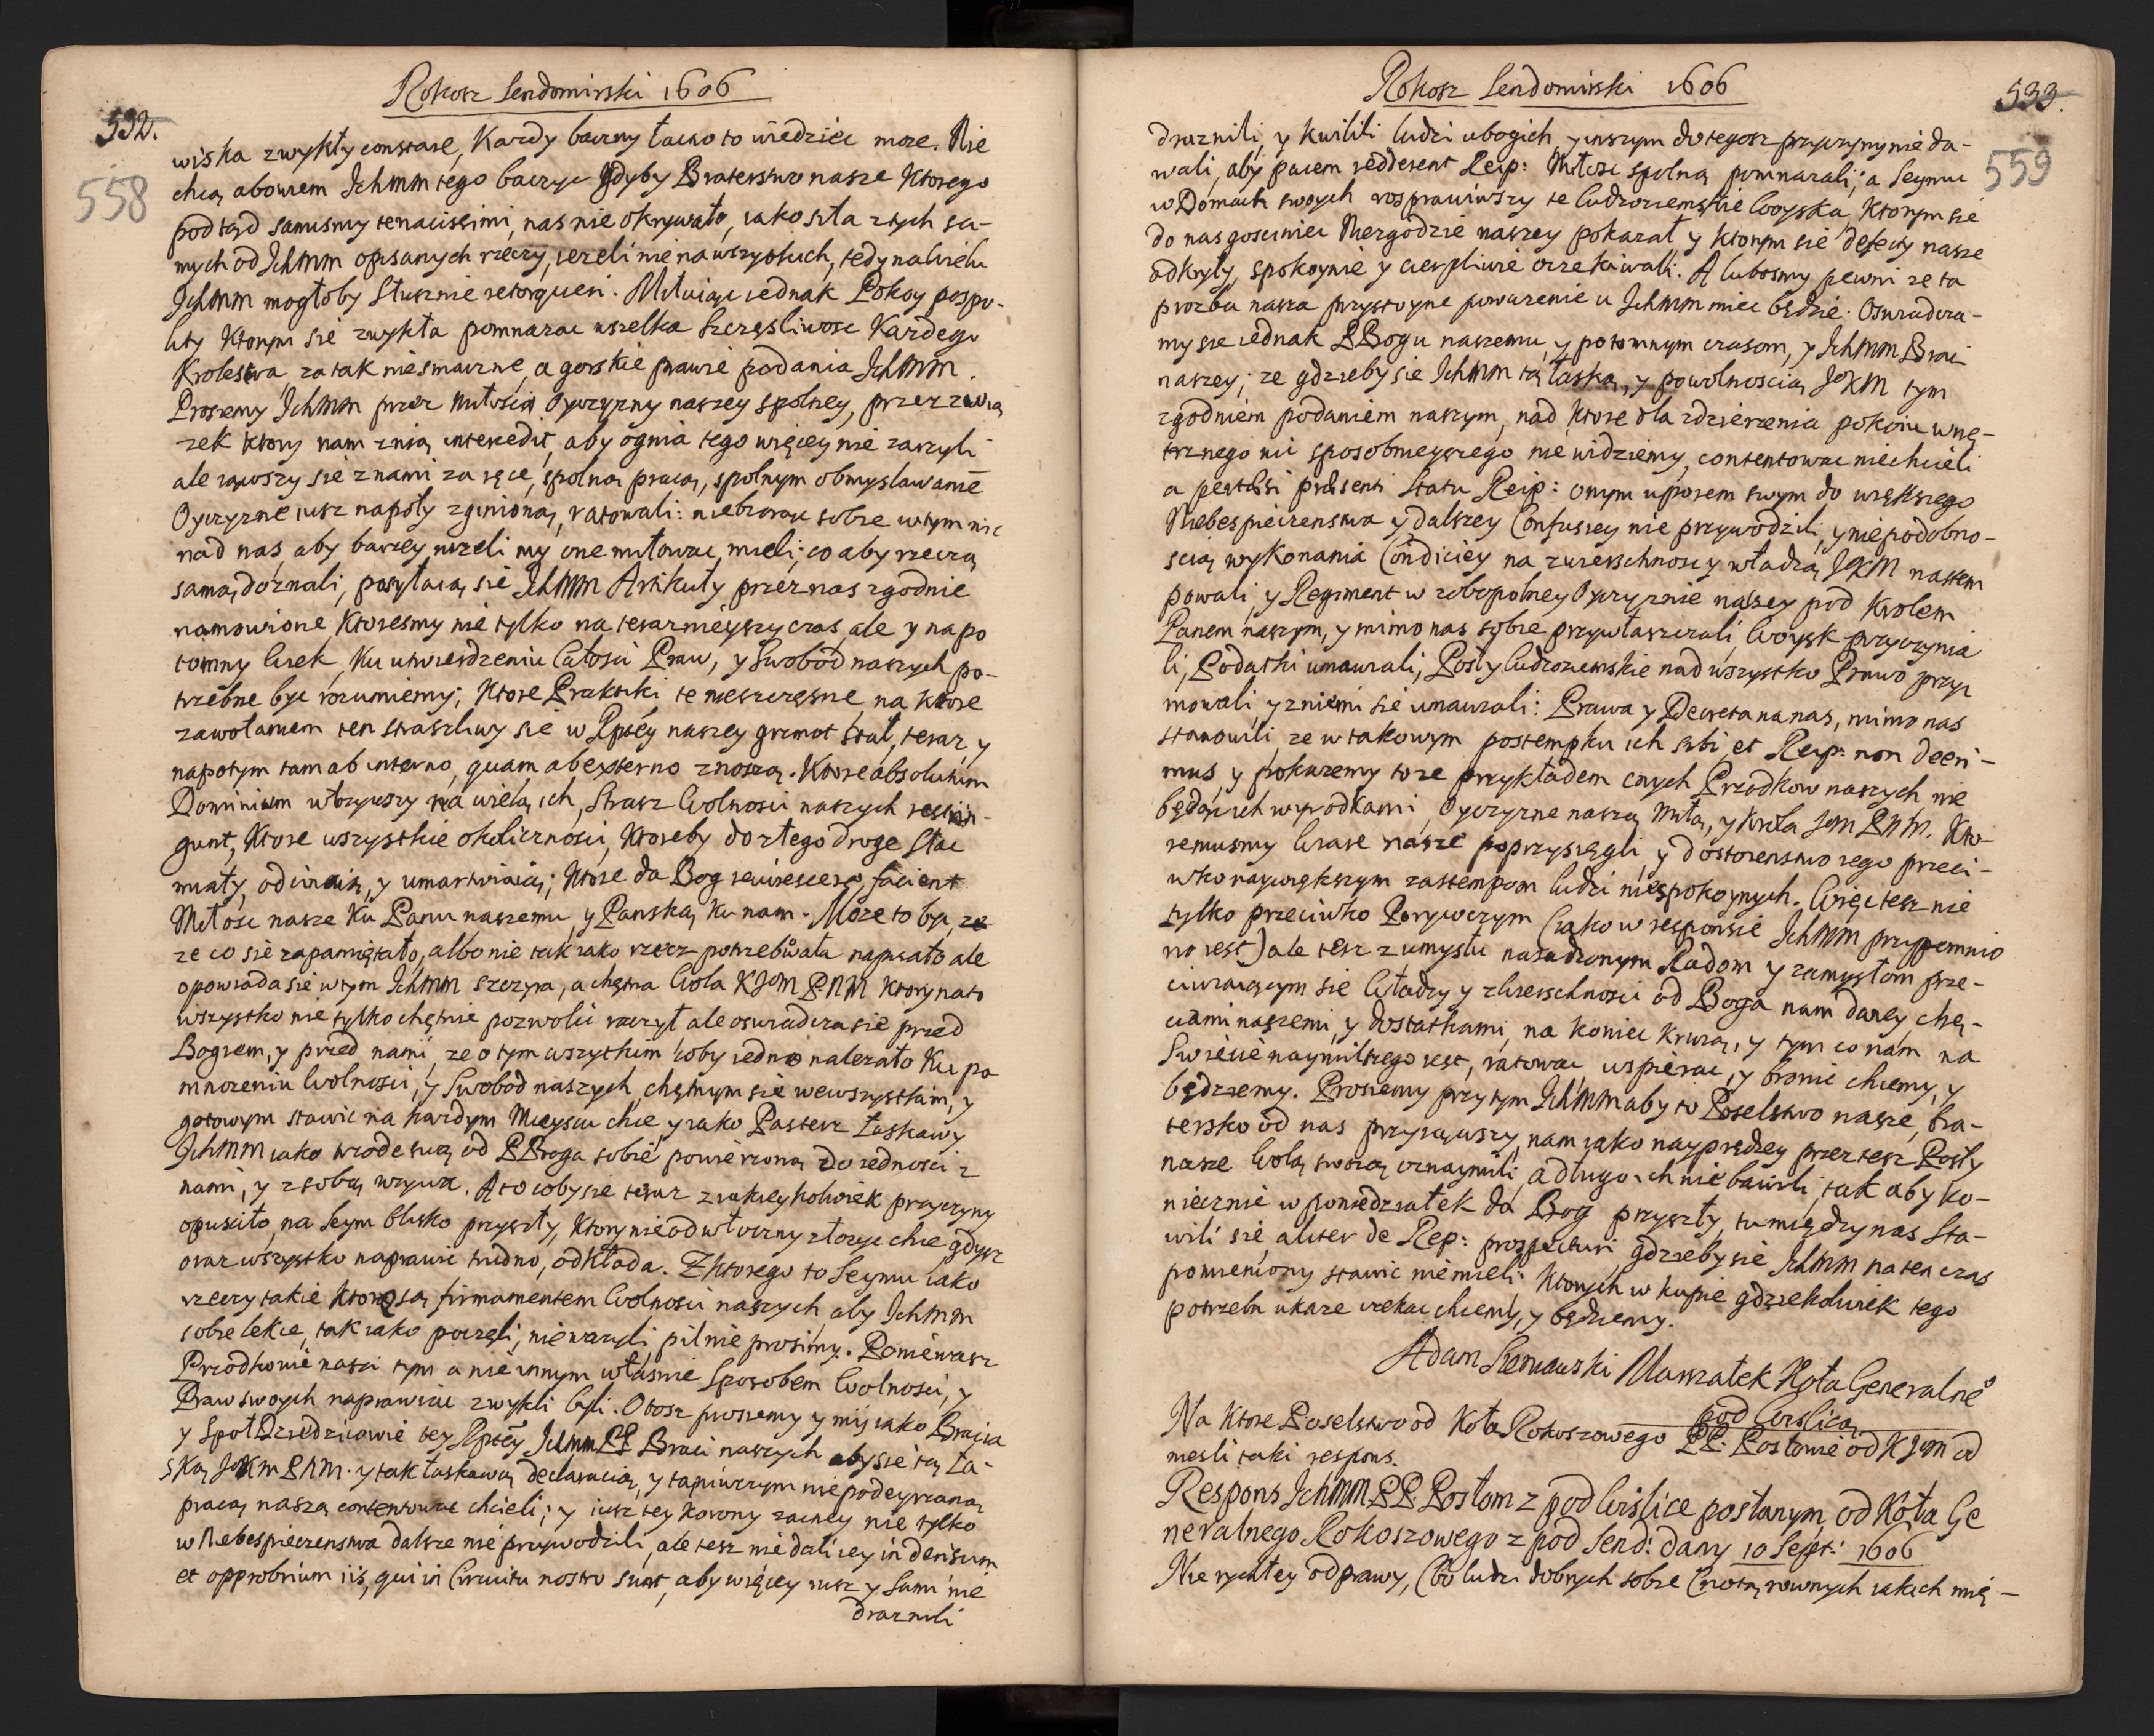 Rokosz Sendomirski 1606
532.
558
wiska zwykły constare, Kazdy baczny łacno to wiedziec moze. Nie
chcą abowiem Ichmm tego baczyc gdyby Braterstwo nasze Ktorego
pod tąd samismy tenacissimi, nas nie okrywało, iako siła z tych sa-
mych od Ichmm opisanych rzeczy, iezeli nie na wszystkich, tedy na wielu
Ichmm mogłoby Słusznie retorqueri. Miłuiąc iednak Pokoy pospo-
lity Ktorym sie zwykła pomnazac wszelka Szczęsliwosc Kazdego
Krolestwa, za tak niesmaczne, a gorzkie prawie podania Ichmm.
Prosiemy Ichmm przez miłoscią Oyczyzny naszey spolney, przez zwią
zek ktory nam z nią intercedit, aby ognia tego więcey nie zarzyli
ale iąwszy sie z nami za ręce, spolną pracą, spolnym obmyslawanie
Oyczyzne iusz napoły zginioną, ratowali: niebiorąc sobie w tym nic
nad nas, aby barzey nizeli my one miłowac mieli; co aby rzeczą
samą doznali, posyłaią sie Ichmm Artikuły przez nas zgodnie
namowione, Ktoresmy nie tylko na teraznieyszy czas, ale y na po
tomny wiek, Ku utwierdzeniu Całosci Praw, y Swobod naszych po-
trzebne byc rozumiemy; Ktore Praktiki te nieszczęsne, na ktore
zawołaniem ten straszliwy sie w Rptéy naszey grzmot stał, teraz y
napotym tam ab interno, quam ab externo znoszą. Ktore absolutum
Dominium w
gunt, Ktore wszystkie okolicznosci, Ktoreby do złego droge Słac
miały, odcinaią, y umartwiaią; Ktore da Bog reviviscere facient
Miłosc nasze Ku Panu naszemu, y Panską Ku nam. Moze to byc, ze
ze co sie zapamiętało, albo nie tak iako rzecz potrzebowała napisało ale
opowiada sie w tym Ichmm szczyra, a chętna Wola KJeM PNM Ktory na to
wszystko nie tylko chętnie pozwolic raczył ale oswiadcza sie przed
Bogiem, y przed nami, ze o tym wszytkim coby iedno nalezało Ku po
mnozeniu Wolnosci, y Swobod naszych, chętnym sie wewszystkim, y
gotowym stawic na kazdym Mieyscu chce, y iako Pasterz Łaskawy
Ichmm iako trzode swą od PBoga sobie powierzoną do iednosci z
nami, y z sobą wzywa. A to coby sie teraz z iakieykolwiek przyczyny
opusciło, na Seym blisko przyszły, Ktory nie odwłoczny złozyc chce gdysz
oraz wszystko naprawic trudno, odkłada. Z ktorego to Seymu iako
rzeczy takie Ktore są firmamentem Wolnosci naszych, aby Ichmm
sobie lekce, tak iako poczęli, niewazyli, pilnie prosimy. Poniewasz
Przodkowie naszi tym a nie innym własnie Sposobem Wolnosci, y
Praw swoych naprawiac zwykli byli. Otosz prosiemy y my iako Bracia
y społ Dziedzicowie tey Rptéy Ichmm PP Braci naszych aby sie tą Ła-
ską JoKm PNM. y tak łaskawą declaracią, y tą niwczym niepodeyrzaną
pracą naszą contentowac chcieli; y iusz tey Korony zacney nie tylko
w Niebespieczenstwa dalsze nie przywodzili, ale tesz nie dali iey in derisum
et opprobrium iis, qui in Circuitu nostro sunt, aby więcey iusz y Sami nie
draznili
Rokosz Sendomirski 1606
533.
559
draznili, y kwilili ludzi ubogich, y inszym do tegosz przyczyny nie da-
wali, aby pacem redderent Reip: Miłosc spolną pomnazali; a Seymu
w Domach swoych rosprawiwszy te ludzoziemskie Woyska, Ktorym sie
do nas gosciniec Niezgodzie naszey pokazał y Ktorym sie defecty nasze
odkryły, spokoynie y cierpliwie oczekiwali. A lubosmy pewni ze ta
prozba nasza przystoyne powazenie u Ichmm miec będzie. Oswiadcza-
my sie iednak PBogu naszemu, y potomnym czasom, y Ichmm Braci
naszey; ze gdzieby sie Ichmm tą łaską, y powolnoscią JoKM tym
zgodniem podaniem naszym, nad Ktore dla zdzierzenia pokoiu wnę-
trznego nic sposobnieyszego nie widziemy, contentowac niechcieli
a pestibsi praesenti Statu Reip: onym uporem swym do większego
Niebespieczenstwa y dalszey Confusiey nie przywodzili, y niepodobno-
scią wykonania Condiciey na zwierschnosc y władzą JKM nastem
powali, y Regiment w zobopolney Oyczyznie naszey pod Krolem
Panem naszym, y mimo nas sobie przywłaszczali, Woysk przyczynia
li, Podatki umawiali, Posły ludzoziemskie nad wszystko Prawo przyi
mowali, y zniemi sie umawiali: Prawa y Decreta na nas, mimo nas
stanowili, ze w takowym postempku ich sibi et Reip. non deeri-
mus, y pokazemy to ze przykładem cnych Przodkow naszych nie
będącich wyrodkami, Oyczyzne naszą Miłą, y Krola Jem PNM. Kto-
remusmy Wiare nasze poprzysięgli, y dostoienstwo iego przeci-
wko naywiększym zastempom ludzi niespokoynych. Więc tesz nie
tylko przeciwko Porywczym (iako w responsie Ichmm przypomnio
no iest) ale tesz z umysłu nasadzonym Radom y zamysłom prze-
ciwiaiącym sie Władzy y zwierschnosci od Boga nam daney, chę-
ciami naszemi, y dostatkami, na koniec krwią, y tym co nam na
Swiecie naymilszego iest, ratowac wspierac, y bronic chcemy, y
będziemy. Prosiemy przy tym Ichmm aby to Poselstwo nasze, bra-
tersko od nas przyiąwszy, nam iako nayprędzey przez tesz Posły
nasze Wolą swoią oznaymili, a długo ich nie bawili, tak aby ko-
niecznie w poniedziałek da Bog przyszły, tu między nas sta-
wili sie, aliter de Rep: prospecturi, gdzieby sie Ichmm na ten czas
pomieniony stawic niemieli. Ktorych w kupie gdziekolwiek tego
potrzeba ukaze czekac chcemy, y będziemy.
Adam Sieniawski Marszałek Koła Generalne°
pod Wislicą
Na Ktore Poselstwo od Koła Rokoszowego PP. Posłowie od KJem od
niesli taki respons.
Respons Ichmm PP Posłom z pod Wislice posłanym, od Koła Ge
neralnego Rokoszowego z pod Send: dany 10 Sept: 1606
Nie rychłey odprawy, (bo ludzi dobrych sobie Cnotą rownych iakich mię-